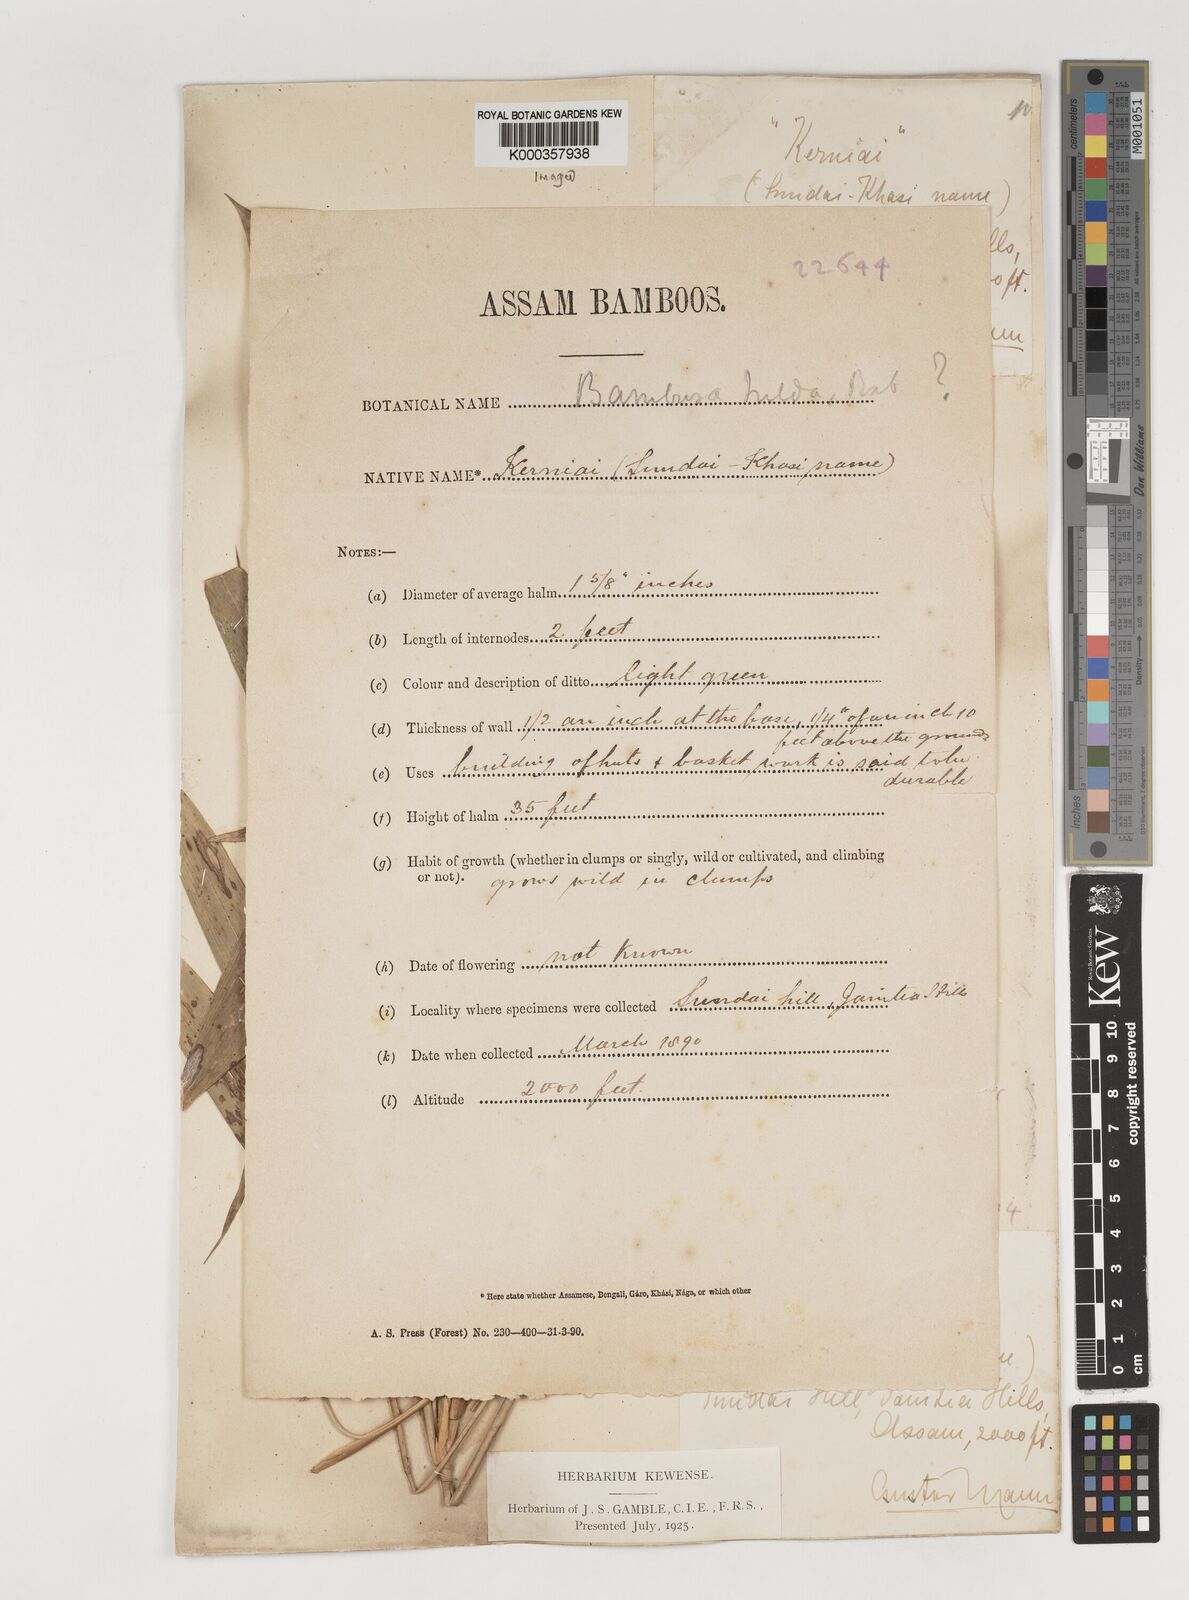 ROYAL BOTANIC GARDENS KEW
K000357938
Imaged
"Kerniai"
(Sundai-Khasi name)
22644
ASSAM BAMBOOS.
BOTANICAL NAME Bambusa Tulda, Roxb ?
NATIVE NAME* Kerniai (Sundai - Khasi name)
NOTES:—
(a) Diameter of average halm 1 5/8" inches
(b) Length of internodes 2 feet
(c) Colour and description of ditto light green
(d) Thickness of wall 1/2 an inch at the base, 1/4" of an inch 10
feet above the ground
(e) Uses building of huts & basket work is said to be
durable
(f) Height of halm 35 feet
(g) Habit of growth (whether in clumps or singly, wild or cultivated, and climbing
or not). grows wild in clumps
(h) Date of flowering not known
(i) Locality where specimens were collected Sundai hill, Jaintia Hills
(k) Date when collected March 1890
(l) Altitude 2000 feet.
* Here state whether Assamese, Bengali, Gáro, Khási, Nága, or which other
A. S. Press (Forest) No. 230—400—31-3-90.
Sundai Hill, Jaintia Hills,
Assam, 2000 ft.
Gustav Mann
HERBARIUM KEWENSE.
Herbarium of J. S. GAMBLE, C.I.E., F.R.S.,
Presented July, 1925.
centimeters
M001051
Don Williams
Density
inches
Royal Botanic Gardens
Kew
copyright reserved
0 1 2 3 4 5 6 7 8 9 10
cm